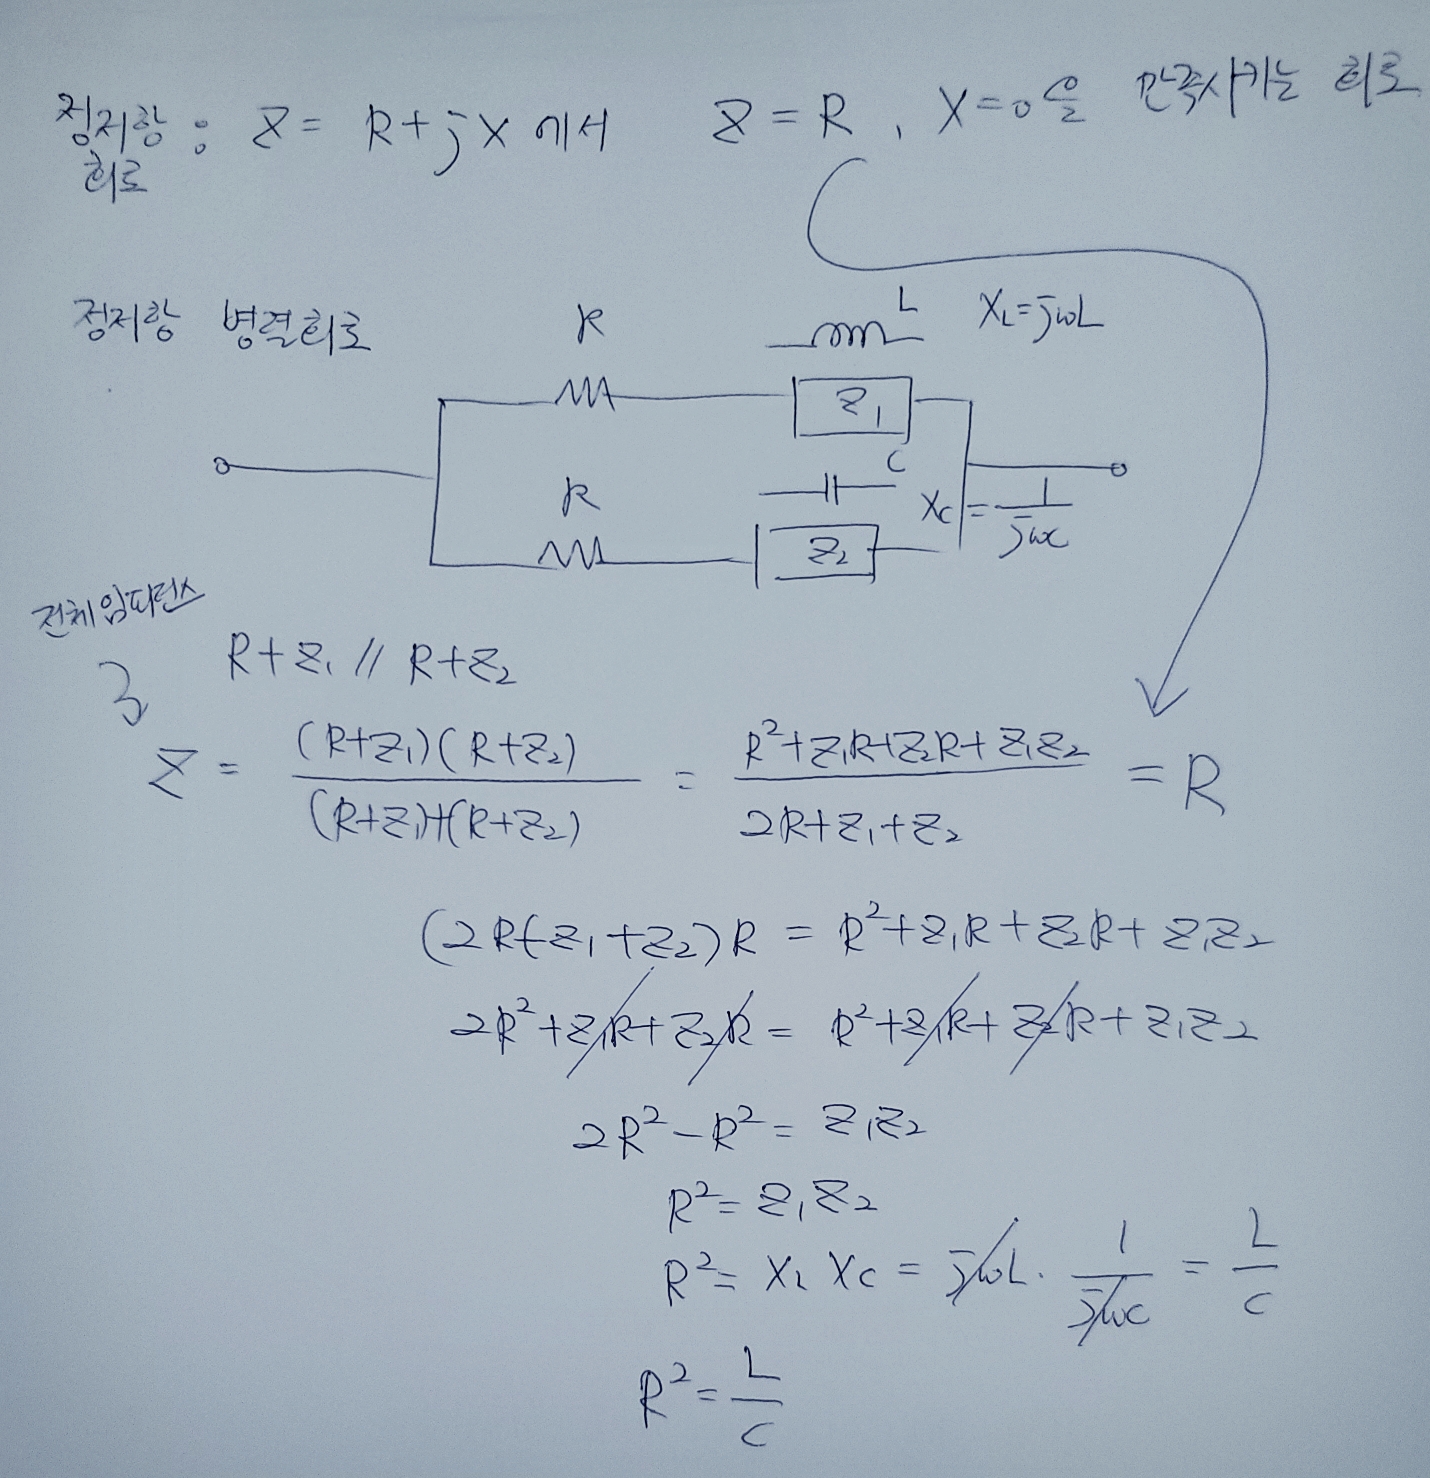 정저항 : Z = R+jX 에서 Z=R, X=0을 만족시키는 회로
회로
정저항 병렬회로
R
L
X_L=jωL
Z₁
R
C
X_C=1/jωC
Z₂
전체임피던스
R+Z₁ // R+Z₂
Z = (R+Z₁)(R+Z₂)/(R+Z₁)+(R+Z₂) = R²+Z₁R+Z₂R+Z₁Z₂/2R+Z₁+Z₂ = R
(2R+Z₁+Z₂)R = R²+Z₁R+Z₂R+Z₁Z₂
2R²+Z₁R+Z₂R = R²+Z₁R+Z₂R+Z₁Z₂
2R²-R² = Z₁Z₂
R² = Z₁Z₂
R² = X_L X_C = jωL · 1/jωC = L/C
R² = L/C